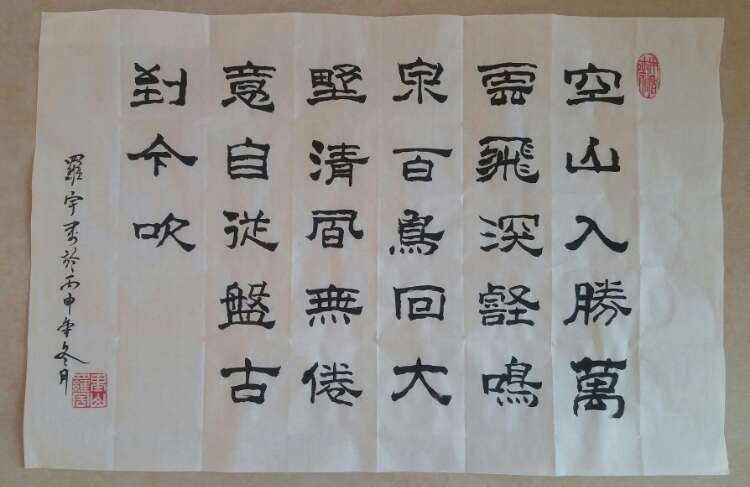 空山入勝萬
雲飛深壑鳴
泉百鳥回大
墅清風無倦
意自從盤古
到今吹
羅宇書於丙申年冬月